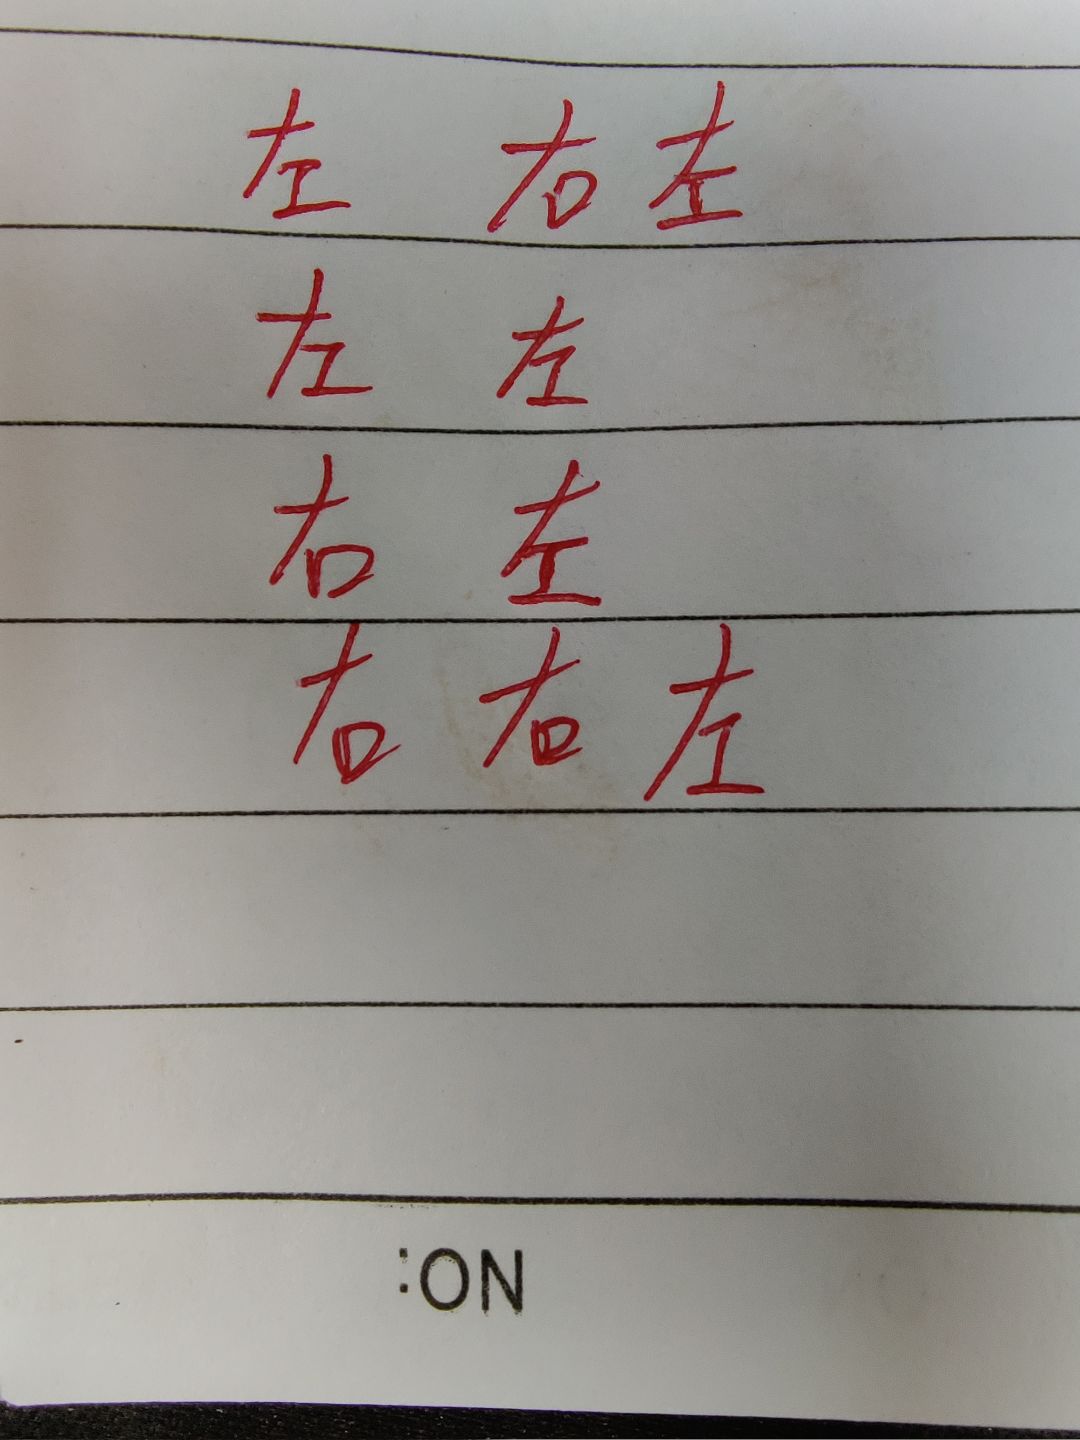 左 右 左
左 左
右 左
右 右 左
:ON